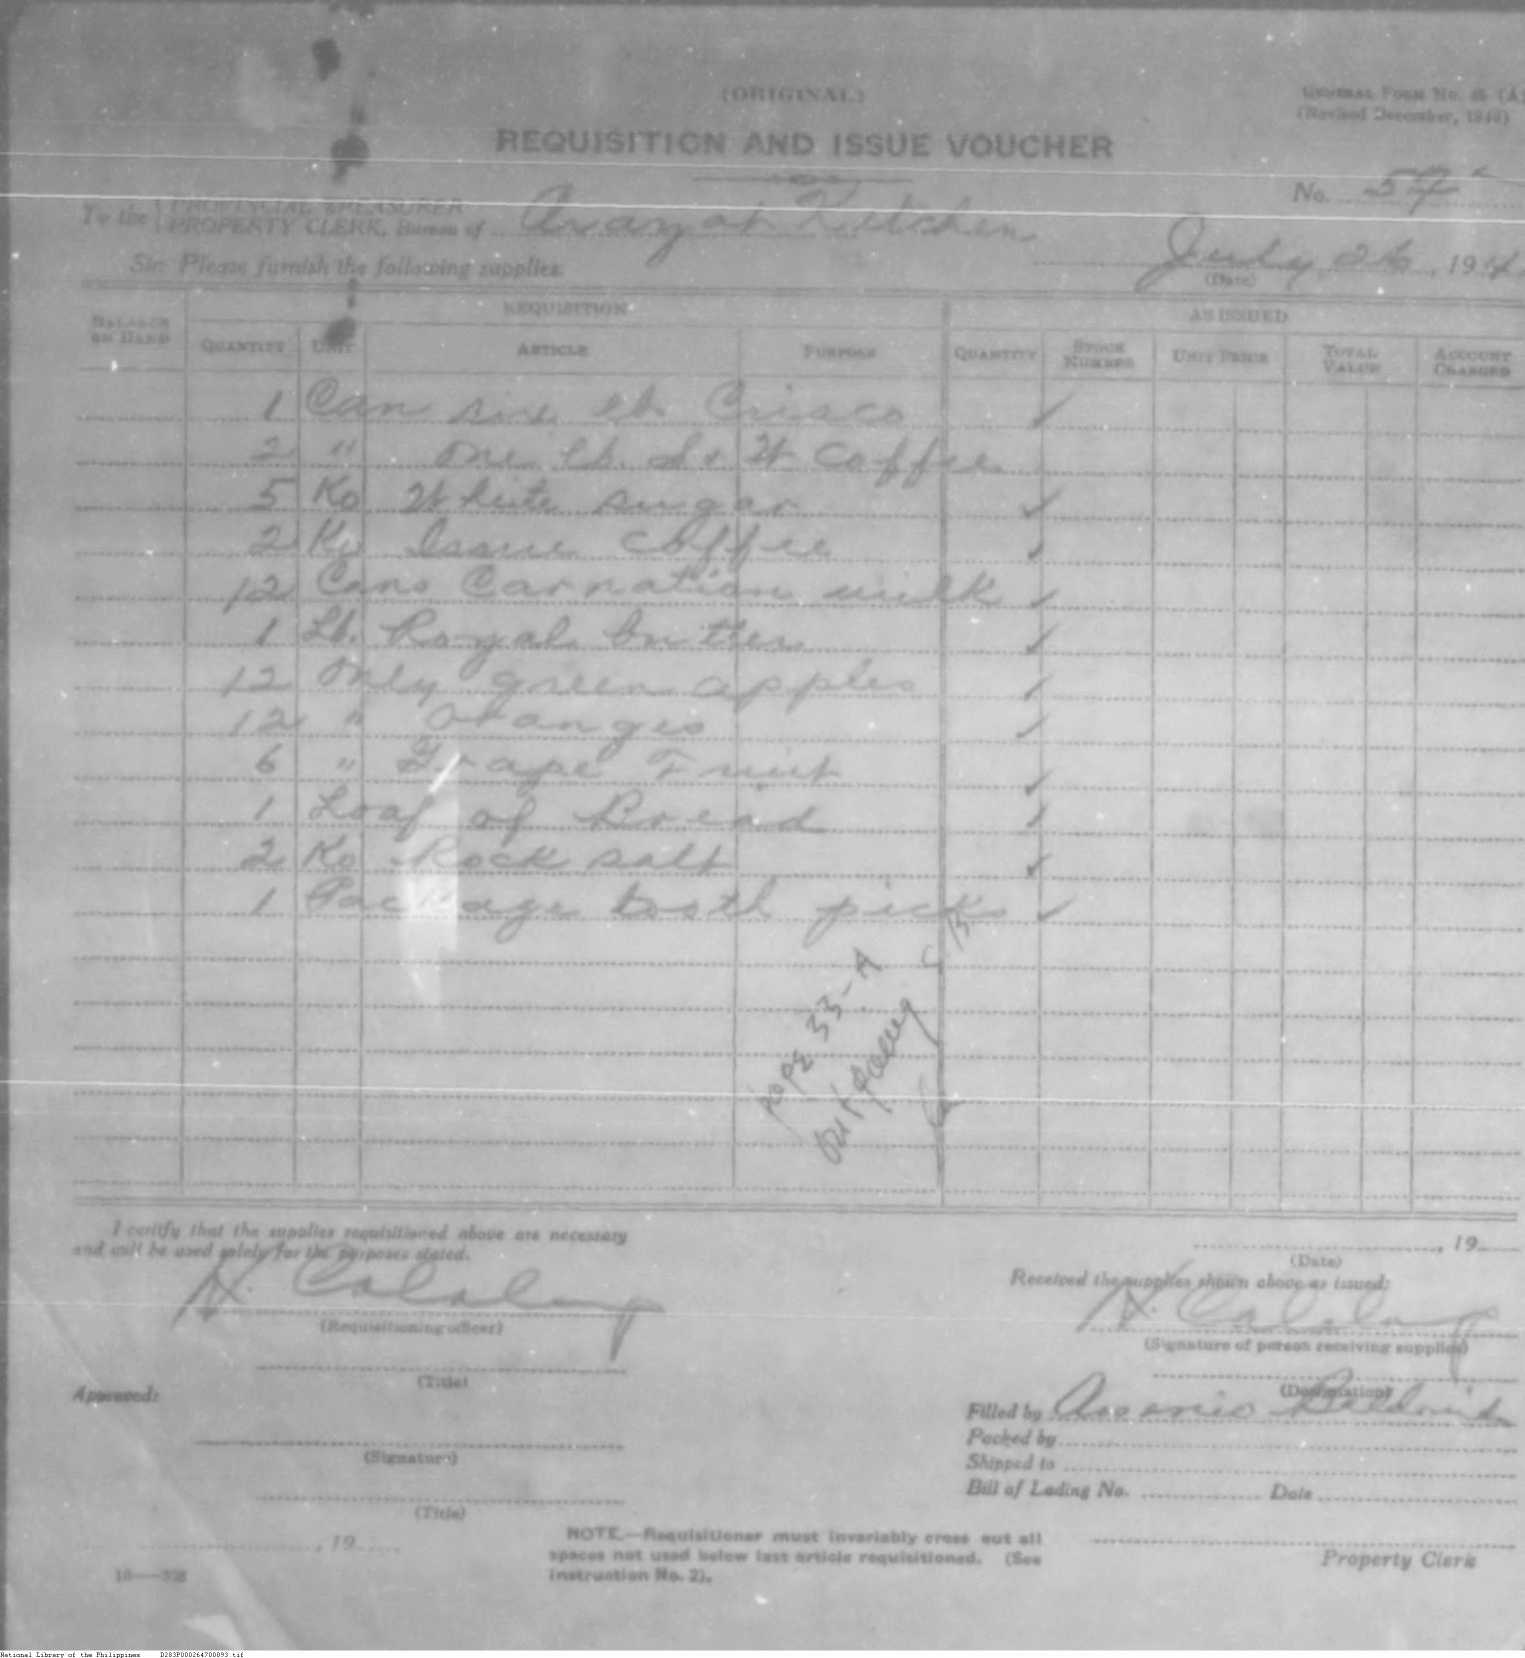 (ORIGINAL)
GENERAL FORM No. (A)
(Revised December, 1940)
REQUISITION AND ISSUE VOUCHER
No. 57
To the PROVINCIAL TREASURER
PROPERTY CLERK, Bureau of Arayat Kitchen
July 26, 194
(Date)
Sir: Please furnish the following supplies:
REQUISITION AS ISSUED
BALANCE ON HAND QUANTITY UNIT ARTICLE PURPOSE QUANTITY STOCK NUMBER UNIT PRICE TOTAL VALUE ACCOUNT CHARGED
1 Can six lb. Crisco ✓
2 " one lb. S. & W Coffee
5 Ko White sugar ✓
2 Ko Issue Coffee ✓
12 Cans Carnation milk ✓
1 Lb. Royal butter ✓
12 Only green apples ✓
12 " Oranges ✓
6 " Grape Fruit ✓
1 Loaf of Bread ✓
2 Ko Rock salt ✓
1 Package tooth picks ✓
page 33-A
I certify that the supplies requisitioned above are necessary
and will be used solely for the purposes stated.
, 19
(Date)
Received the supplies shown above as issued:
N. Calalang
(Requisitioning officer)
N. Calalang
(Signature of person receiving supplies)
(Title)
(Designation)
Approved:
Filled by
Packed by
(Signature)
Shipped to
Bill of Lading No. Date
(Title)
, 19
NOTE.—Requisitioner must invariably cross out all
spaces not used below last article requisitioned. (See
Instruction No. 2).
Property Clerk
National Library of the Philippines D283P000264700893.tif